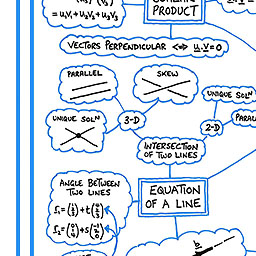 = u₁v₁ + u₂v₂ + u₃v₃
PRODUCT
VECTORS PERPENDICULAR ⟺ u.v = 0
PARALLEL
SKEW
UNIQUE SOLN
UNIQUE SOLN
3-D
2-D
INTERSECTION
OF TWO LINES
ANGLE BETWEEN
TWO LINES
EQUATION
OF A LINE
b